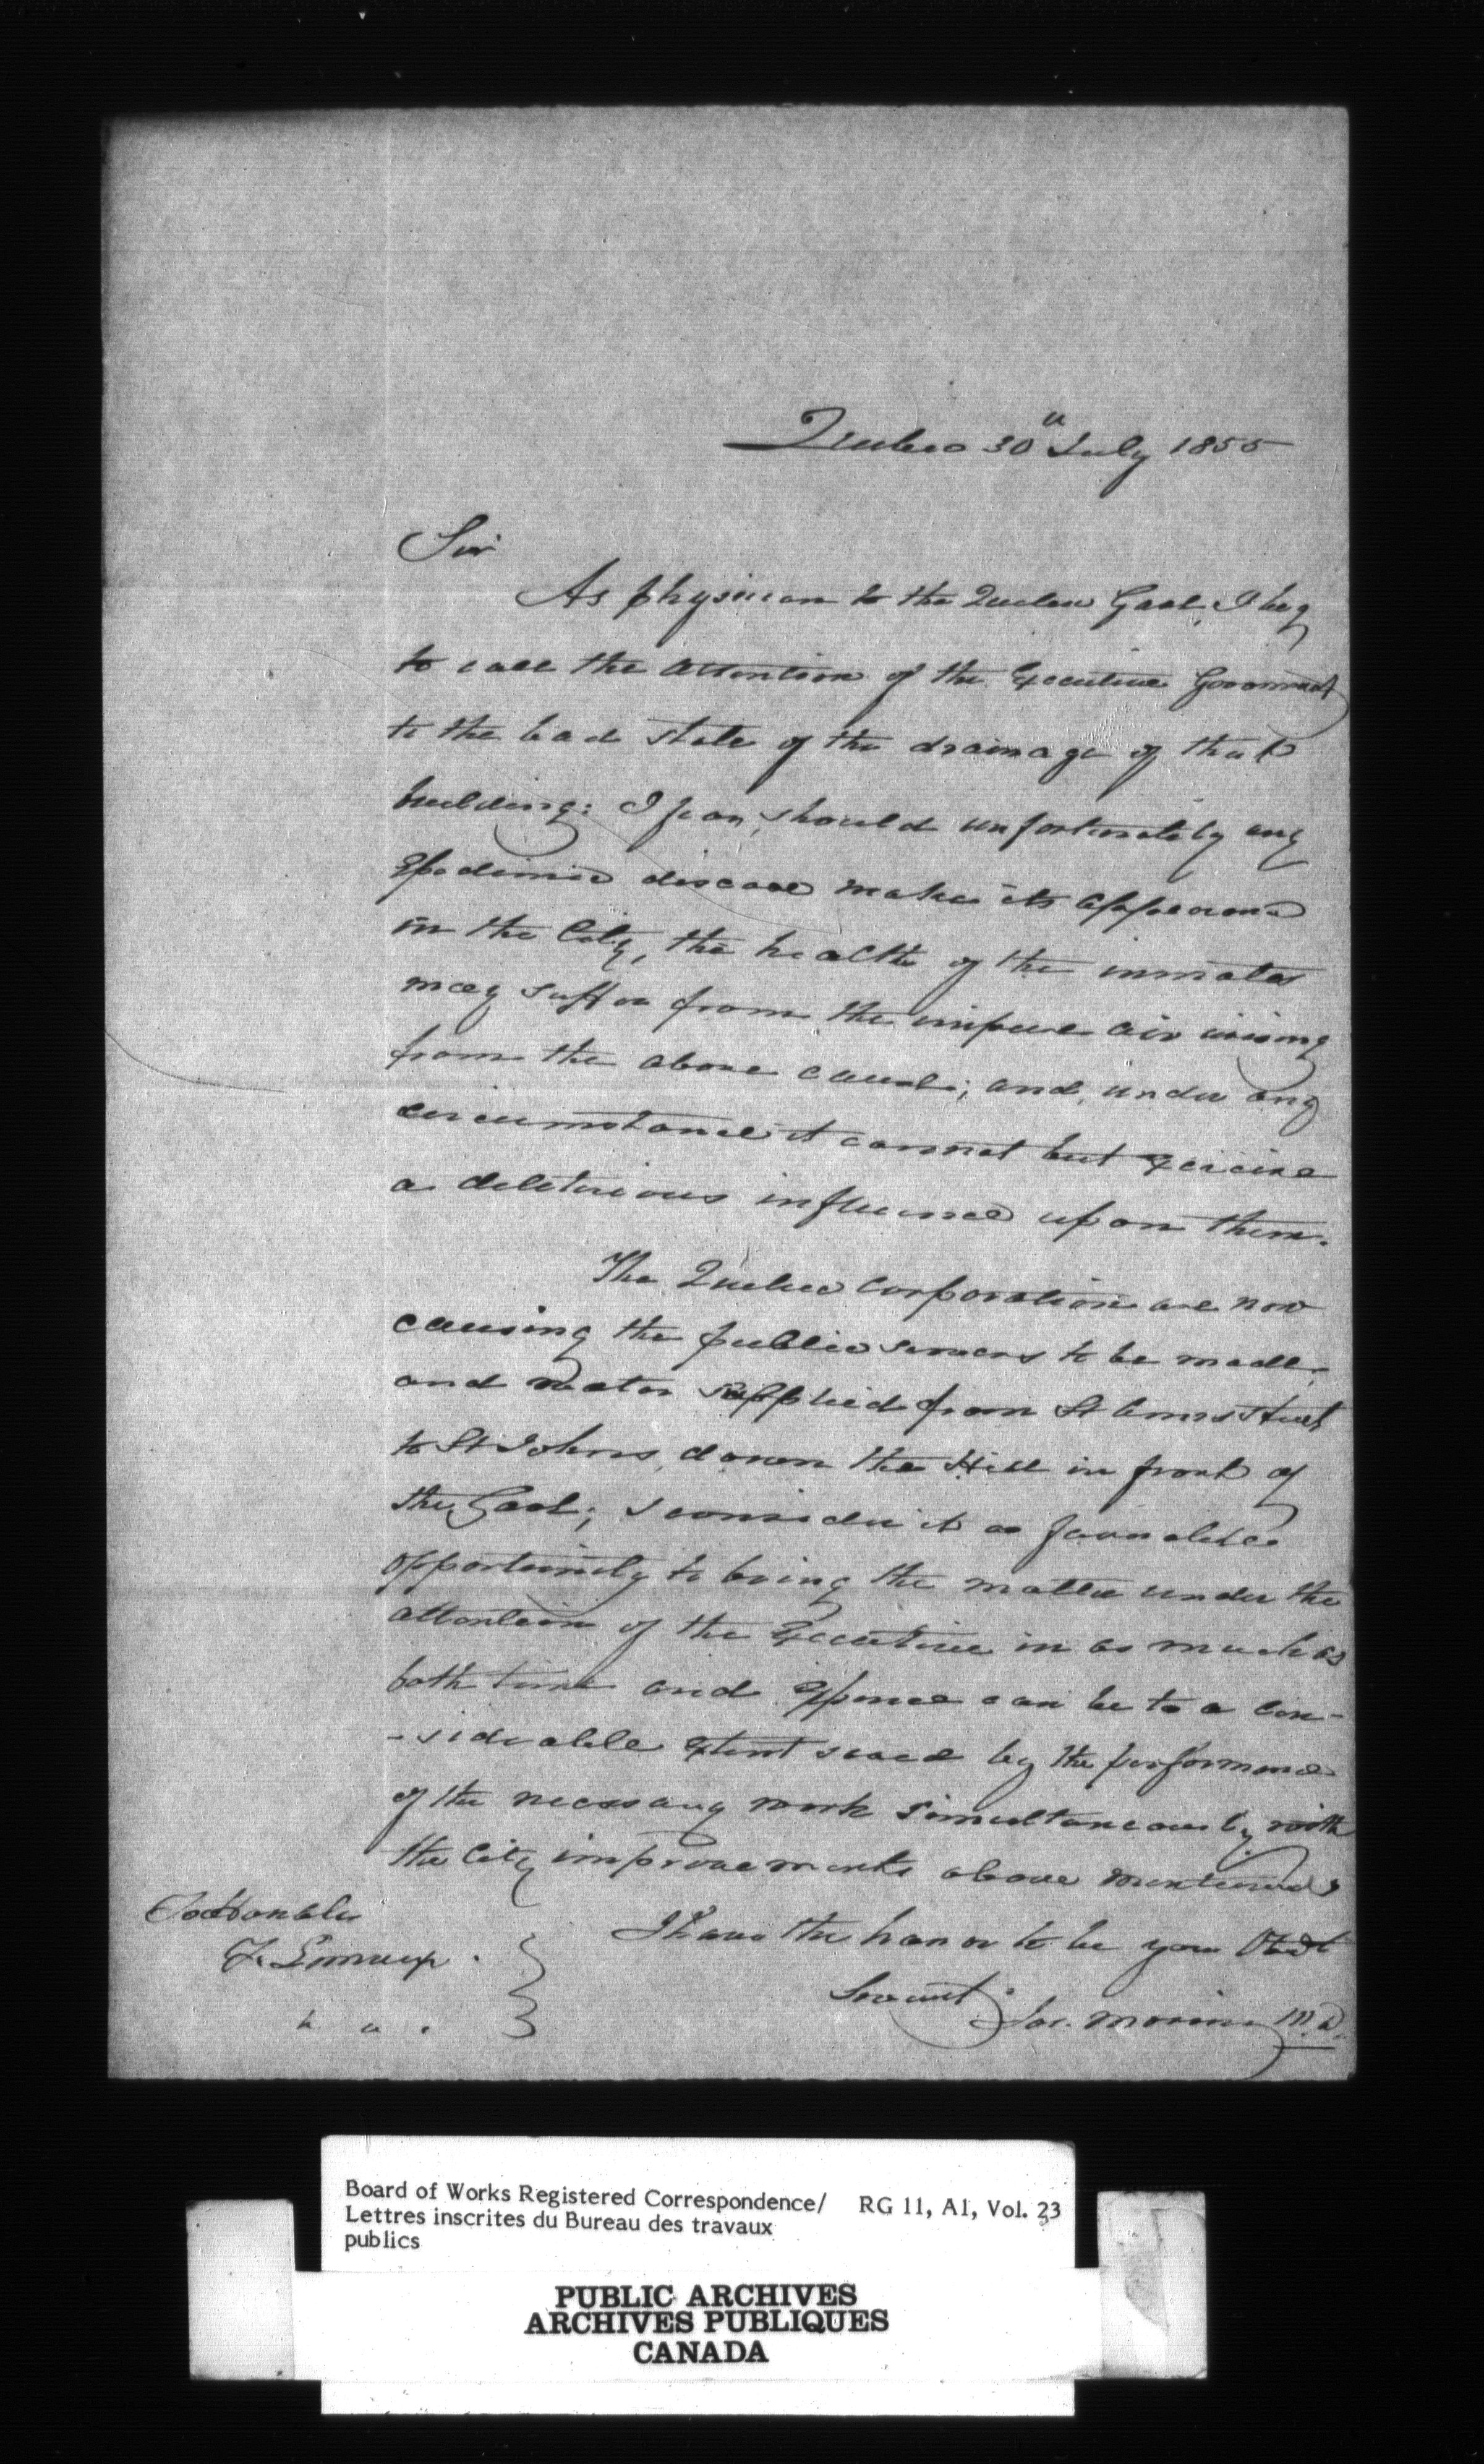 Quebec 30th July 1855
Sir
As physician to the Quebec Gaol, I beg
to call the attention of the Executive Government
to the bad state of the drainage of that
building: I fear, should unfortunately any
Epedimic disease make its appearance
in the City, the health of the inmates
may suffer from the impure air arising
from the above cause; and, under any
circumstance it cannot but exercise
a deleterious influence upon them.
The Quebec Corporation are now
causing the public sewers to be made
and water supplied from St Anns Street
to St Johns, down the Hill in front of
the Gaol; I consider it a favorable
opportunity to bring the matter under the
attention of the Executive in as much as
both time and Expence can be to a con-
-siderable extent saved by the performance
of the necessary work simultaneously with
the City improvements above mentioned
I have the honor to be your Obedt
Servant
Jos. Morrin M.D.
To Honble
F. Lemieux
Board of Works Registered Correspondence/ RG 11, A1, Vol. 23
Lettres inscrites du Bureau des travaux
publics
PUBLIC ARCHIVES
ARCHIVES PUBLIQUES
CANADA